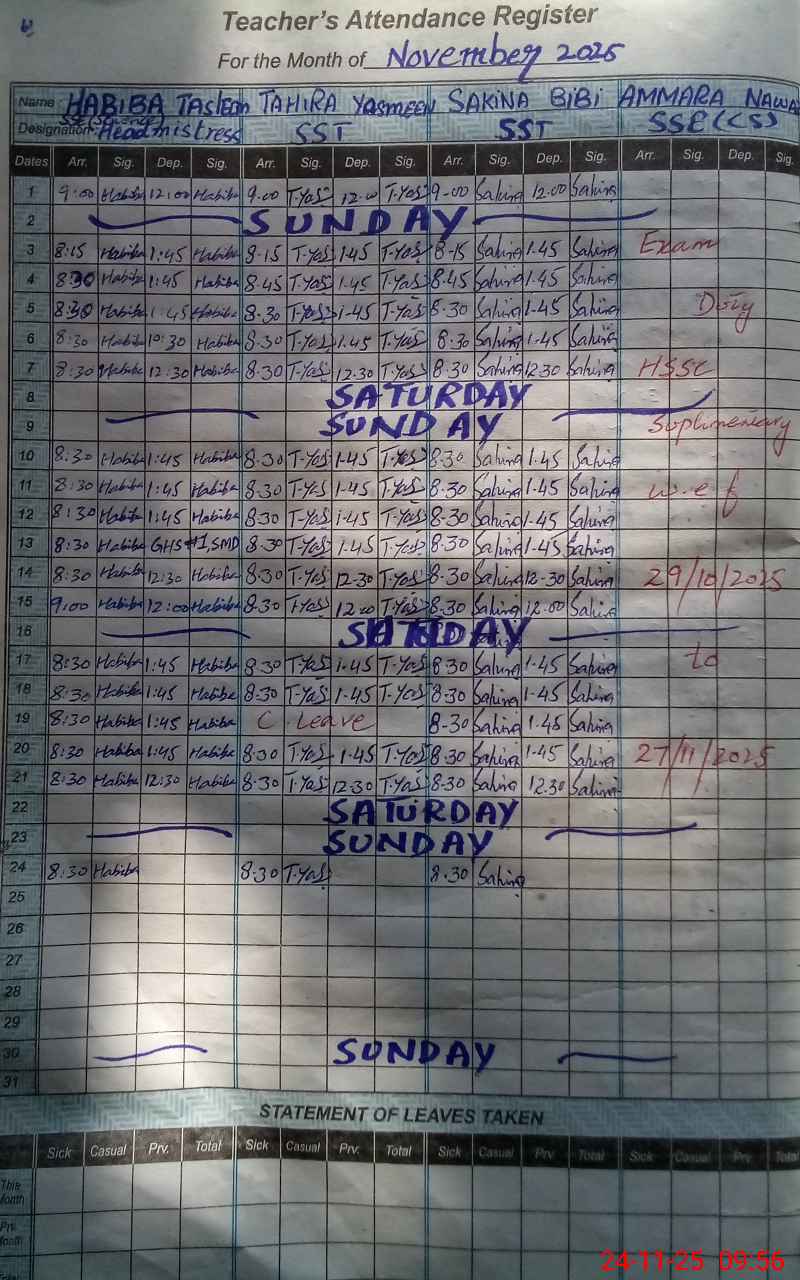 Teacher's Attendance Register
For the Month of November 2025
Name: HABIBA Tasleem TAHIRA Yasmeen SAKINA BIBI AMMARA NAWA
SSE(Science)
Designation: Headmistress SST SST SSE(CS)
Dates Arr. Sig. Dep. Sig. Arr. Sig. Dep. Sig. Arr. Sig. Dep. Sig. Arr. Sig. Dep. Sig.
1 9:00 Habiba 12:00 Habiba 9.00 T.YaS 12.00 T.YaS 9.00 Sakina 12.00 Sakina
2 SUNDAY
3 8:15 Habiba 1:45 Habiba 8.15 T.YaS 1.45 T.YaS 8-15 Sakina 1.45 Sakina Exam
4 8:30 Habiba 1:45 Habiba 8.45 T.YaS 1.45 T.YaS 8.45 Sakina 1.45 Sakina
5 8:30 Habiba 1:45 Habiba 8.30 T.YaS 1.45 T.YaS 8.30 Sakina 1.45 Sakina Duty
6 8:30 Habiba 10:30 Habiba 8.30 T.YaS 1.45 T.YaS 8.30 Sakina 1.45 Sakina
7 8:30 Habiba 12:30 Habiba 8.30 T.YaS 12.30 T.YaS 8.30 Sakina 12.30 Sakina HSSC
8 SATURDAY
9 SUNDAY Suplimentary
10 8:30 Habiba 1:45 Habiba 8.30 T.YaS 1.45 T.YaS 8.30 Sakina 1.45 Sakina
11 8:30 Habiba 1:45 Habiba 8.30 T.YaS 1.45 T.YaS 8.30 Sakina 1.45 Sakina w.e f
12 8:30 Habiba 1:45 Habiba 8.30 T.YaS 1.45 T.YaS 8.30 Sakina 1.45 Sakina
13 8:30 Habiba GHS #1,SMD 8.30 T.YaS 1.45 T.YaS 8.30 Sakina 1.45 Sakina
14 8:30 Habiba 12:30 Habiba 8.30 T.YaS 12-30 T.YaS 8.30 Sakina 12-30 Sakina 29/10/2025
15 9:00 Habiba 12:00 Habiba 8.30 T.YaS 12.00 T.YaS 8.30 Sakina 12.00 Sakina
16 SUNDAY
17 8:30 Habiba 1:45 Habiba 8.30 T.YaS 1.45 T.YaS 8.30 Sakina 1.45 Sakina to
18 8:30 Habiba 1:45 Habiba 8.30 T.YaS 1.45 T.YaS 8.30 Sakina 1.45 Sakina
19 8:30 Habiba 1:45 Habiba C. Leave 8-30 Sakina 1.45 Sakina
20 8:30 Habiba 1:45 Habiba 8.30 T.YaS 1.45 T.YaS 8.30 Sakina 1.45 Sakina 27/11/2025
21 8:30 Habiba 12:30 Habiba 8.30 T.YaS 12.30 T.YaS 8.30 Sakina 12.30 Sakina
22 SATURDAY
23 SUNDAY
24 8:30 Habiba 8.30 T.YaS 8.30 Sakina
25
26
27
28
29
30 SUNDAY
31
STATEMENT OF LEAVES TAKEN
Sick Casual Prv. Total Sick Casual Prv. Total Sick Casual Prv. Total Sick Casual Prv. Total
This Month
Prv. Month
24-11-25 09:56